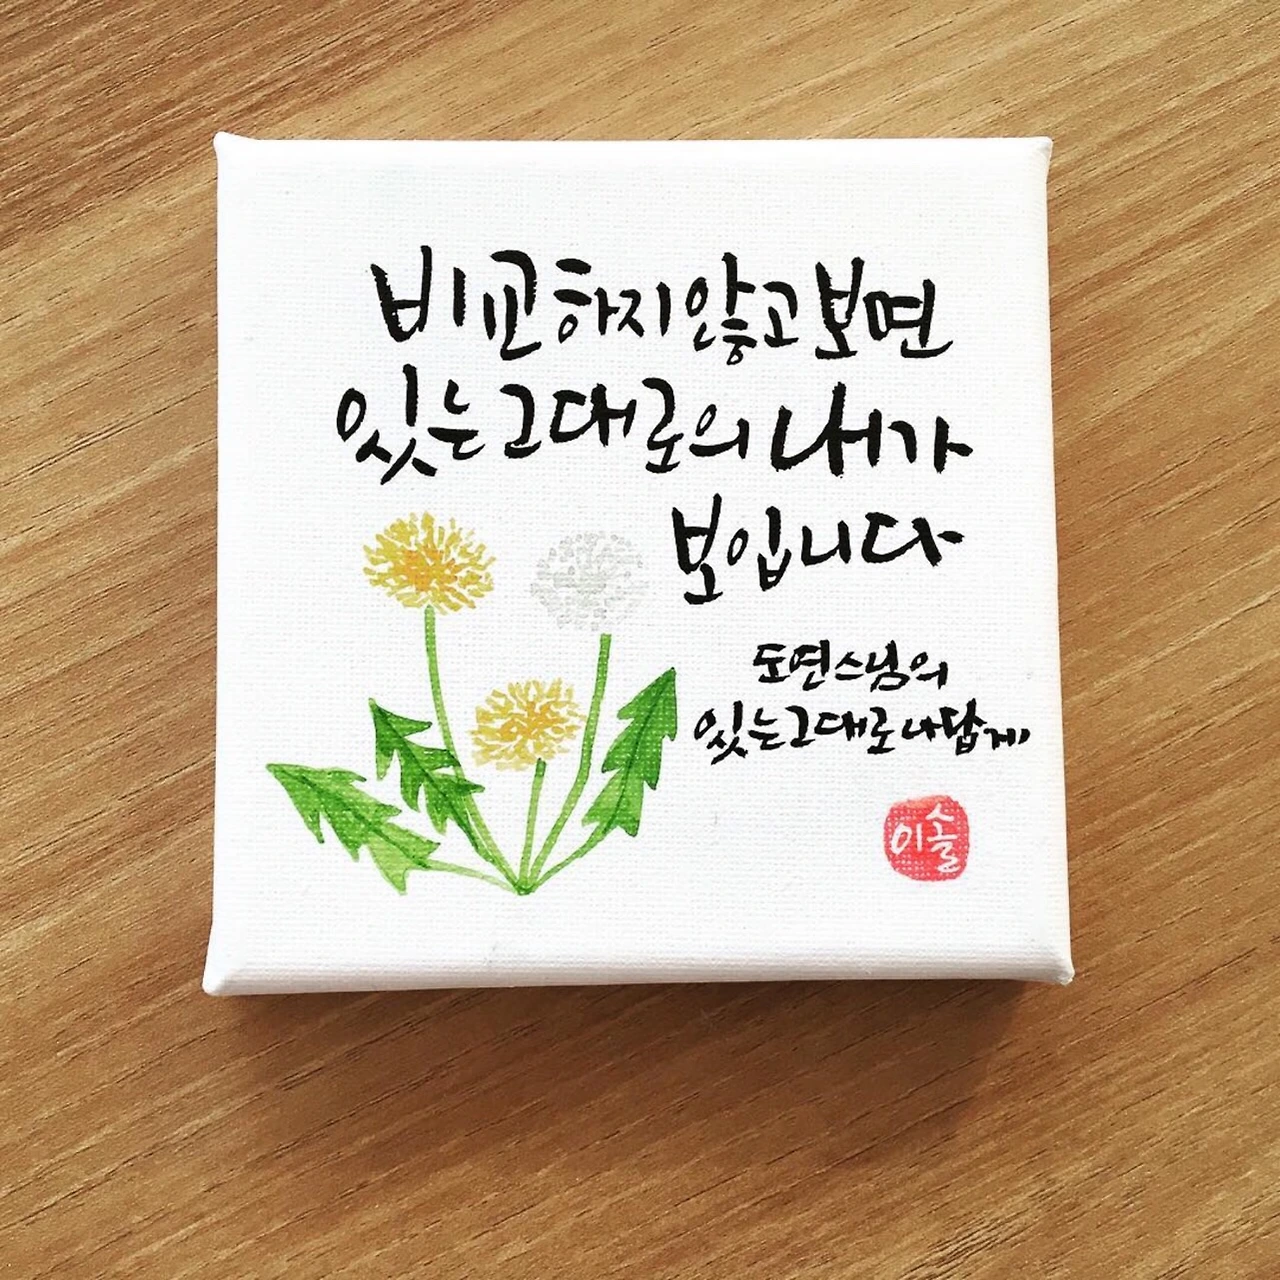 비교하지 않고 보면
있는 그대로의 내가
보입니다
도연스님의
있는 그대로 나답게
이솔